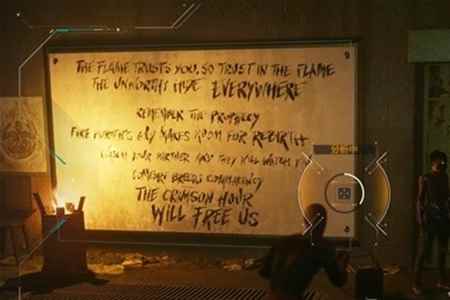 THE FLAME TRUSTS YOU, SO TRUST IN THE FLAME
THE UNWORTHY HIDE "EVERYWHERE"
REMEMBER THE PROPHECY
FIRE MAKES ROOM FOR REBIRTH
YOUR BROTHER AND THEY WILL WATCH
BREEDS COMPLACENCY
THE CRIMSON HOUR
WILL FREE US